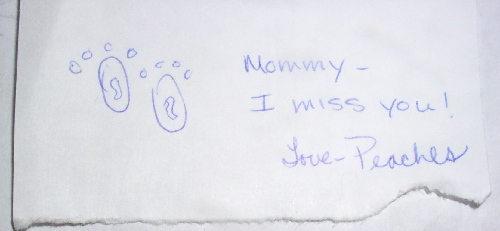 Mommy -
I miss you!
Love - Peaches